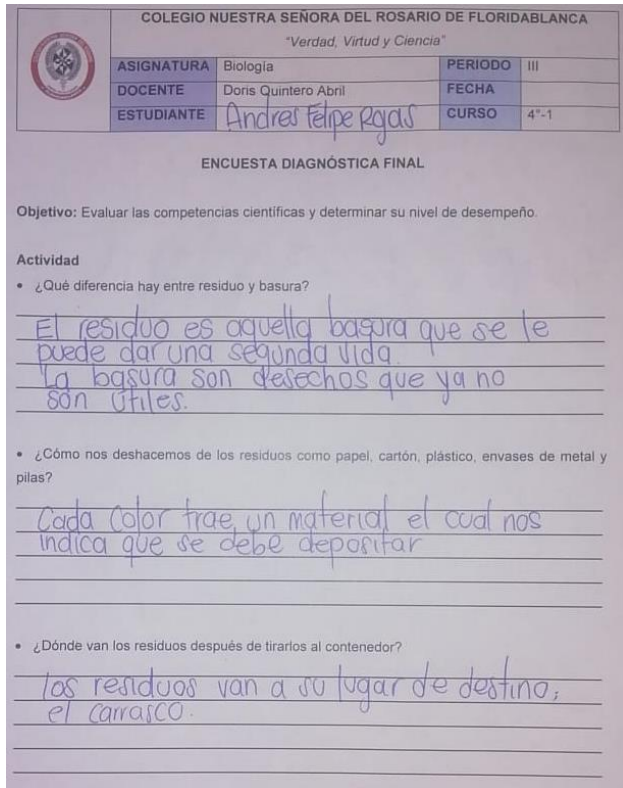 COLEGIO NUESTRA SEÑORA DEL ROSARIO DE FLORIDABLANCA
"Verdad, Virtud y Ciencia"
ASIGNATURA Biología PERIODO III
DOCENTE Doris Quintero Abril FECHA
ESTUDIANTE Andres Felipe Rojas CURSO 4°-1
ENCUESTA DIAGNÓSTICA FINAL
Objetivo: Evaluar las competencias científicas y determinar su nivel de desempeño.
Actividad
• ¿Qué diferencia hay entre residuo y basura?
El residuo es aquella basura que se le
puede dar una segunda vida.
La basura son desechos que ya no
són útiles.
• ¿Cómo nos deshacemos de los residuos como papel, cartón, plástico, envases de metal y
pilas?
Cada color trae un material el cual nos
indica que se debe depositar
• ¿Dónde van los residuos después de tirarlos al contenedor?
los residuos van a su lugar de destino;
el carrasco.